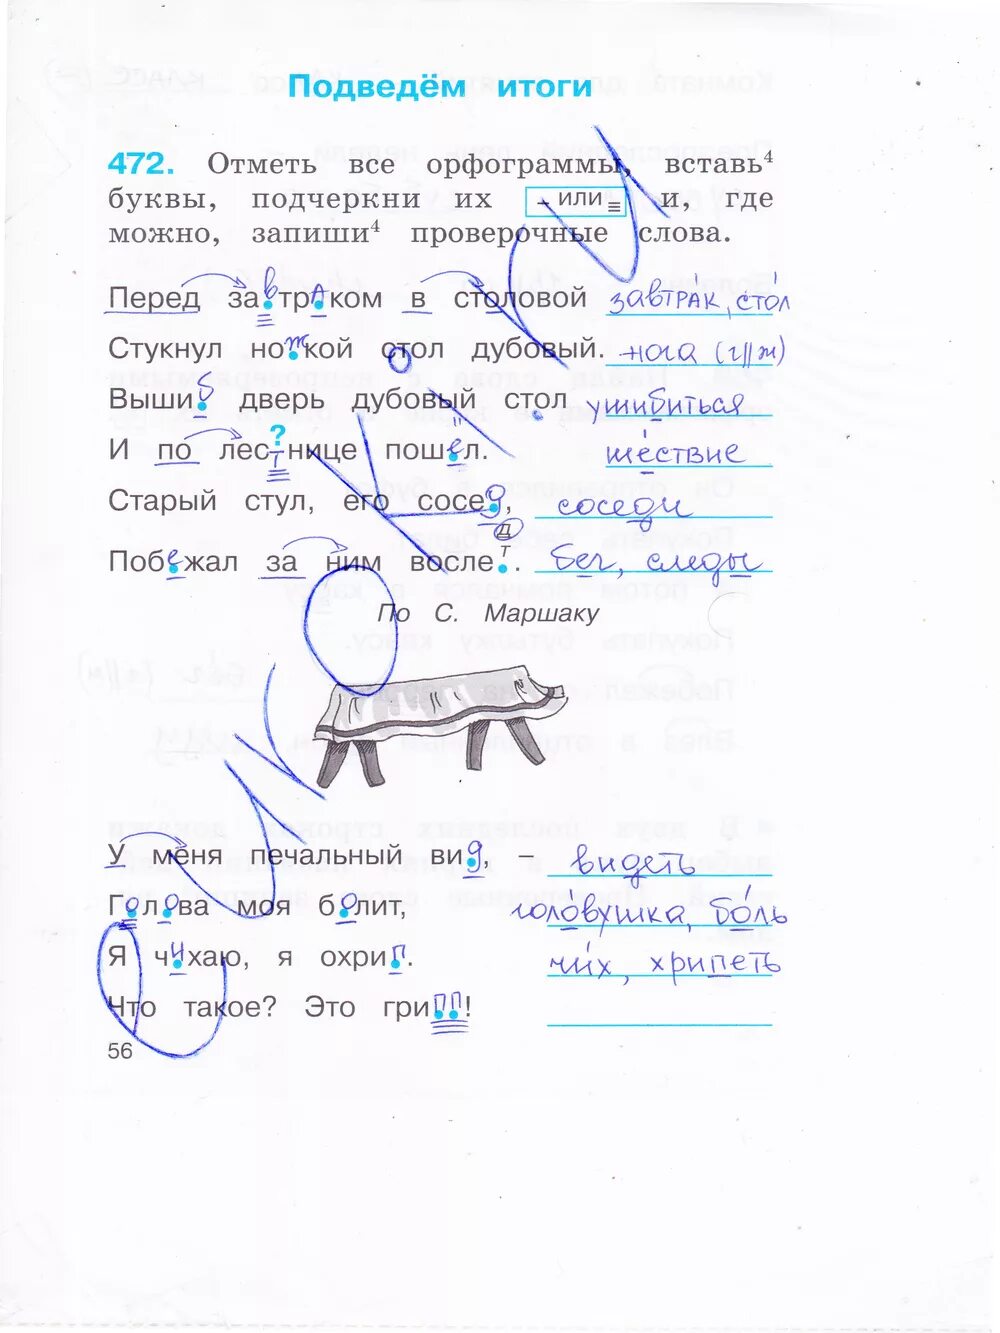 Подведём итоги
472. Отметь все орфограммы, вставь⁴
буквы, подчеркни их - или ≡ и, где
можно, запиши⁴ проверочные слова.
Перед завтраком в столовой завтрак, стол
Стукнул ножкой стол дубовый. нога (г||ж)
Вышиб дверь дубовый стол ушибиться
И по лес?тнице пошёл. шествие
Старый стул, его сосед, соседи
д
т
Побежал за ним восле. бег, следы
По С. Маршаку
У меня печальный вид, – видеть
Голова моя болит, головушка, боль
Я чихаю, я охрип. чих, хрипеть
Что такое? Это грипп!
56